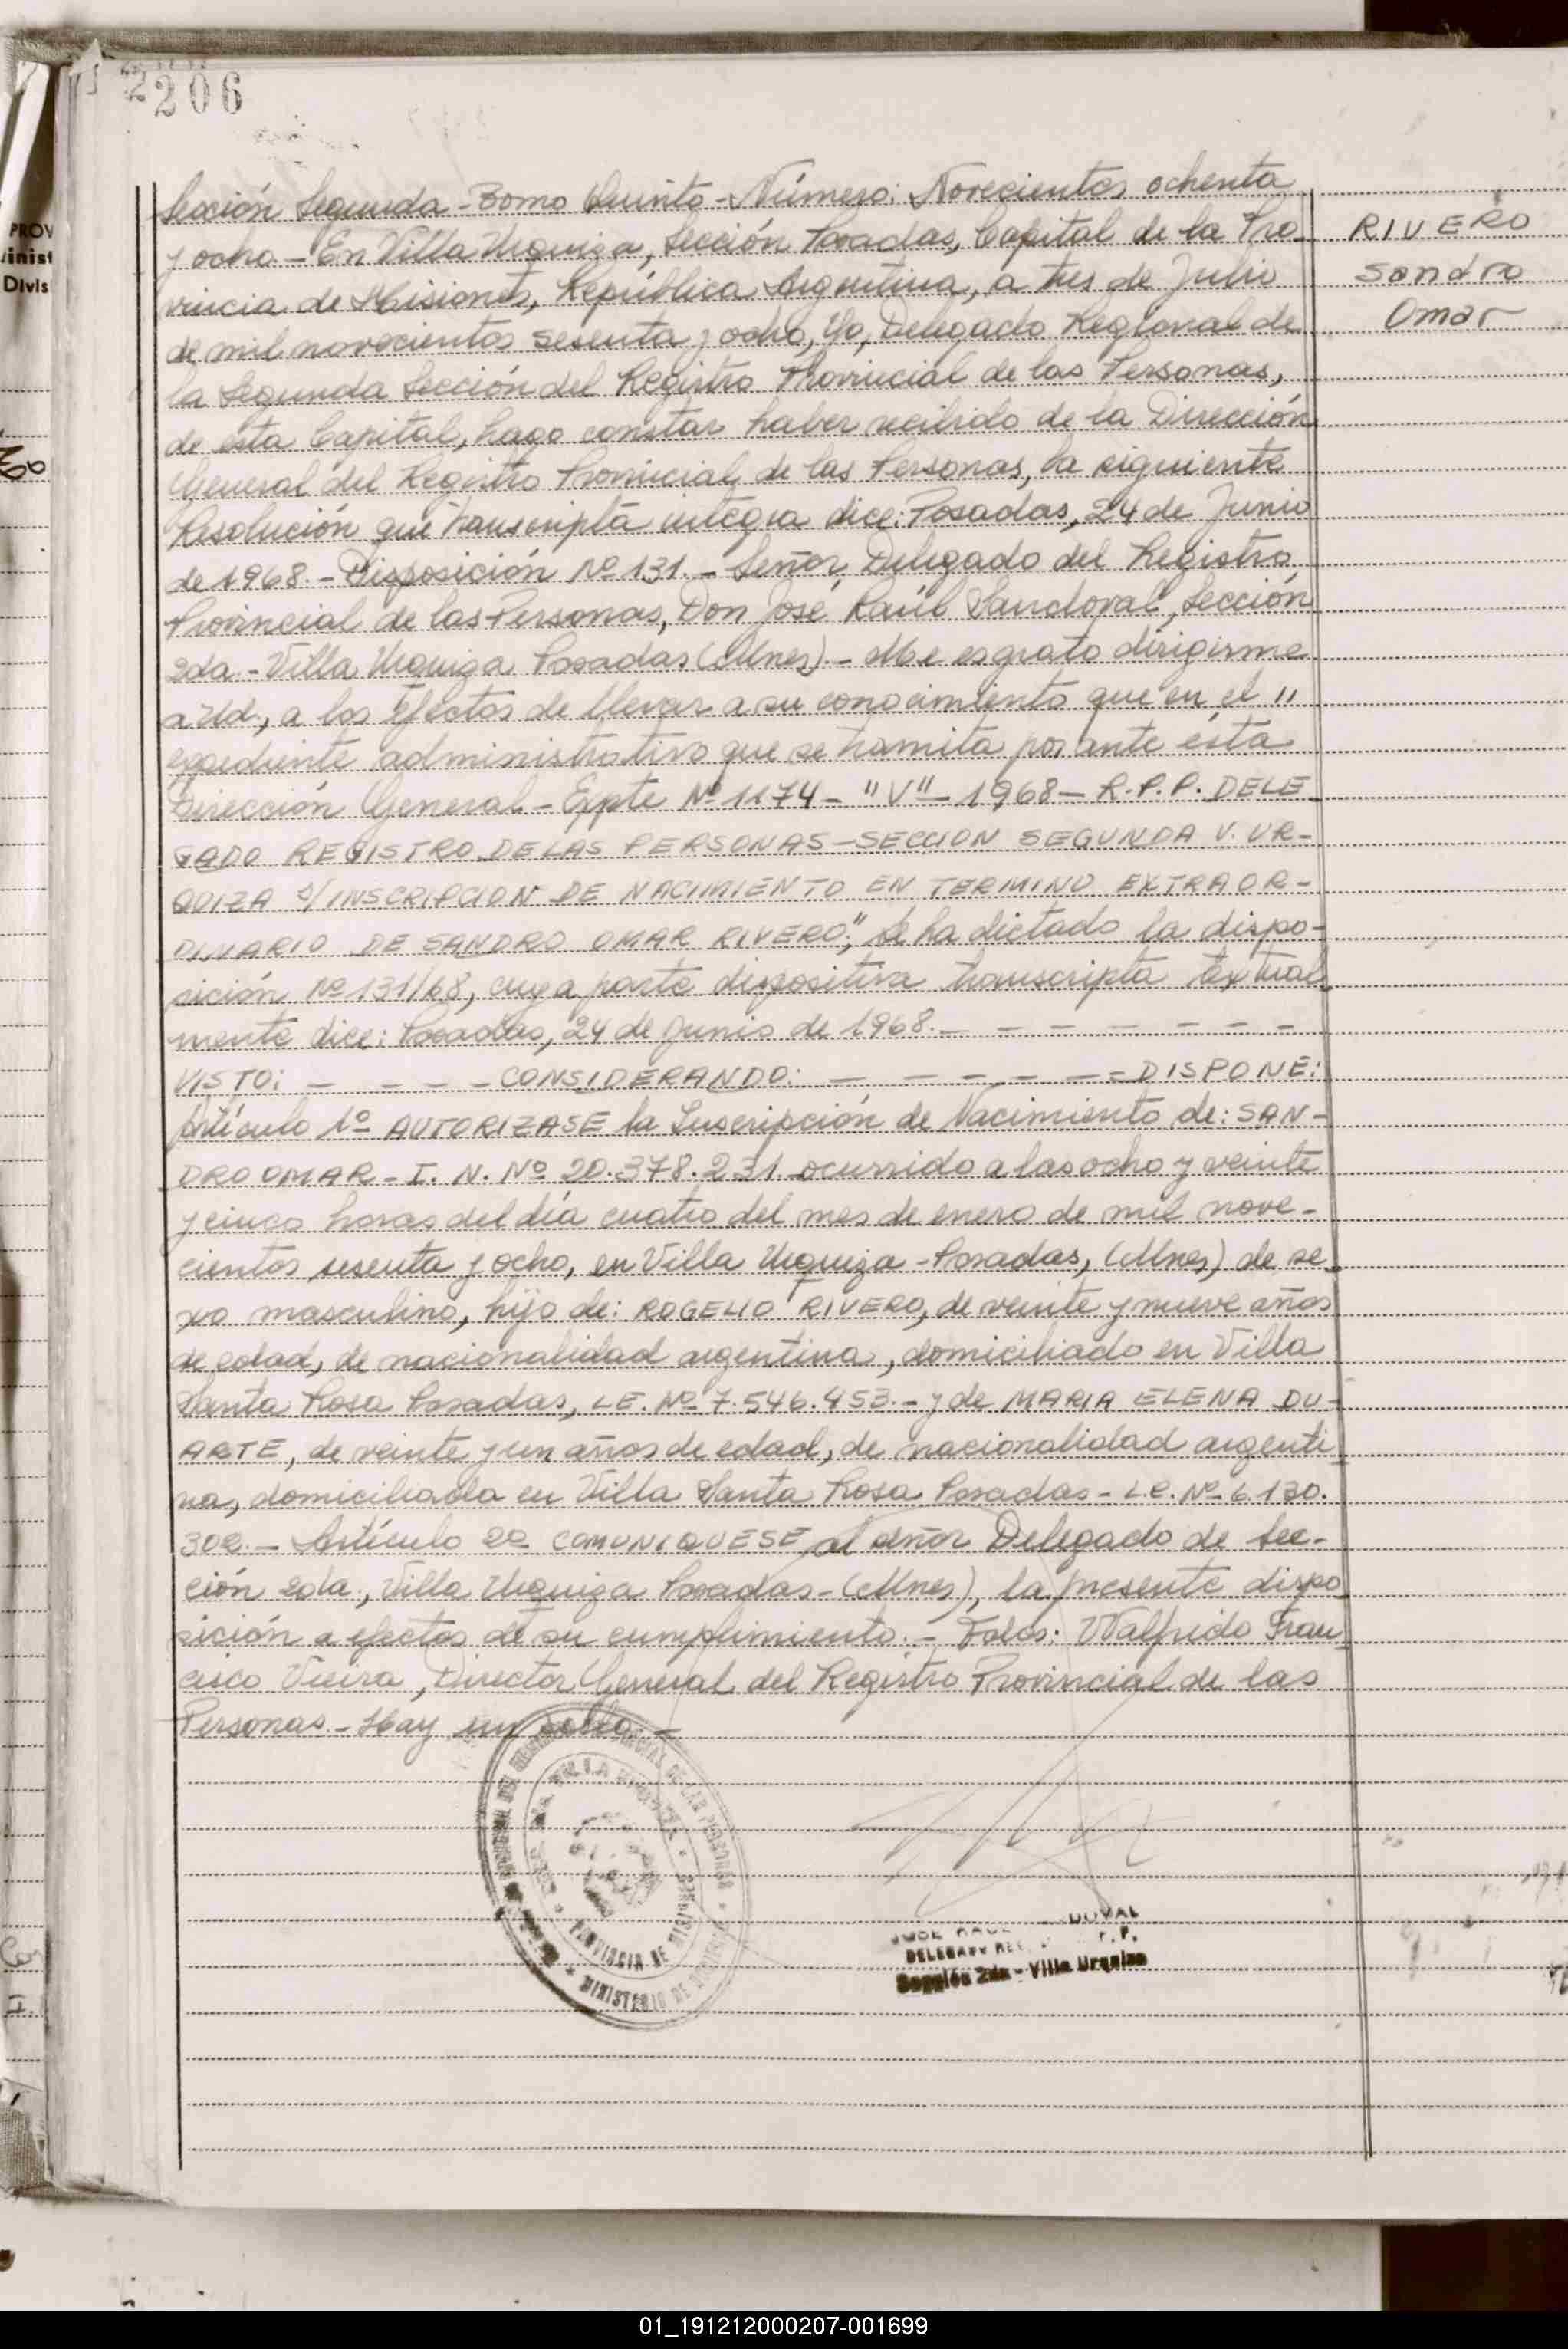 206
PROV
inist
Divis
RIVERO
Sandro
Omar
Sección Segunda - Tomo Quinto - Número: Novecientos ochenta
y ocho. - En Villa Urquiza, Sección Posadas, Capital de la Pro-
vincia de Misiones, República Argentina, a tres de Julio
de mil novecientos sesenta y ocho, Yo, Delegado Regional de
la Segunda Sección del Registro Provincial de las Personas,
de esta Capital, hago constar haber recibido de la Dirección
General del Registro Provincial de las Personas, la siguiente
Resolución que transcripta integra dice: Posadas, 24 de Junio
de 1968. - Disposición Nº 131. - Señor Delegado del Registro
Provincial de las Personas, Don José Raúl Sandoval, Sección
2da. - Villa Urquiza Posadas (Mnes). - Me es grato dirigirme
a Ud., a los efectos de llevar a su conocimiento que en el "
expediente administrativo que se tramita por ante esta
Dirección General - Expte Nº 1174 - "V" - 1968 - R.P.P. DELE
GADO REGISTRO DE LAS PERSONAS - SECCION SEGUNDA V. UR-
QUIZA s/INSCRIPCION DE NACIMIENTO EN TERMINO EXTRAOR-
DINARIO DE SANDRO OMAR RIVERO", se ha dictado la dispo-
sición Nº 131/68, cuya parte dispositiva transcripta textual
mente dice: Posadas, 24 de Junio de 1968. - - - - - - - -
VISTO: - - - - CONSIDERANDO: - - - - - - - DISPONE:
Artículo 1º AUTORIZASE la Inscripción de Nacimiento de: SAN-
DRO OMAR - I. N. Nº 20.378.231. ocurrido a las ocho y veinte
y cinco horas del día cuatro del mes de enero de mil nove-
cientos sesenta y ocho, en Villa Urquiza - Posadas, (Mnes) de se-
xo masculino, hijo de: ROGELIO RIVERO, de veinte y nueve años
de edad, de nacionalidad argentina, domiciliado en Villa
Santa Rosa Posadas, L.E. Nº 7.546.453. - y de MARIA ELENA DU-
ARTE, de veinte y un años de edad, de nacionalidad argenti
na, domiciliada en Villa Santa Rosa Posadas - L.C. Nº 6.130.
302. - Artículo 2º COMUNIQUESE al señor Delegado de Sec-
ción 2da., Villa Urquiza Posadas - (Mnes), la presente dispo
sición a efectos de su cumplimiento. - Fdos: Walfrido Fran-
cisco Vieira, Director General del Registro Provincial de las
Personas. - Hay un sello. -
VILLA URQUIZA
PROVINCIA DE MISIONES
MINISTERIO DE
JOSE RAUL DOVAL
DELEGADO REG. P.
Sección 2da - Villa Urquiza
01_191212000207-001699